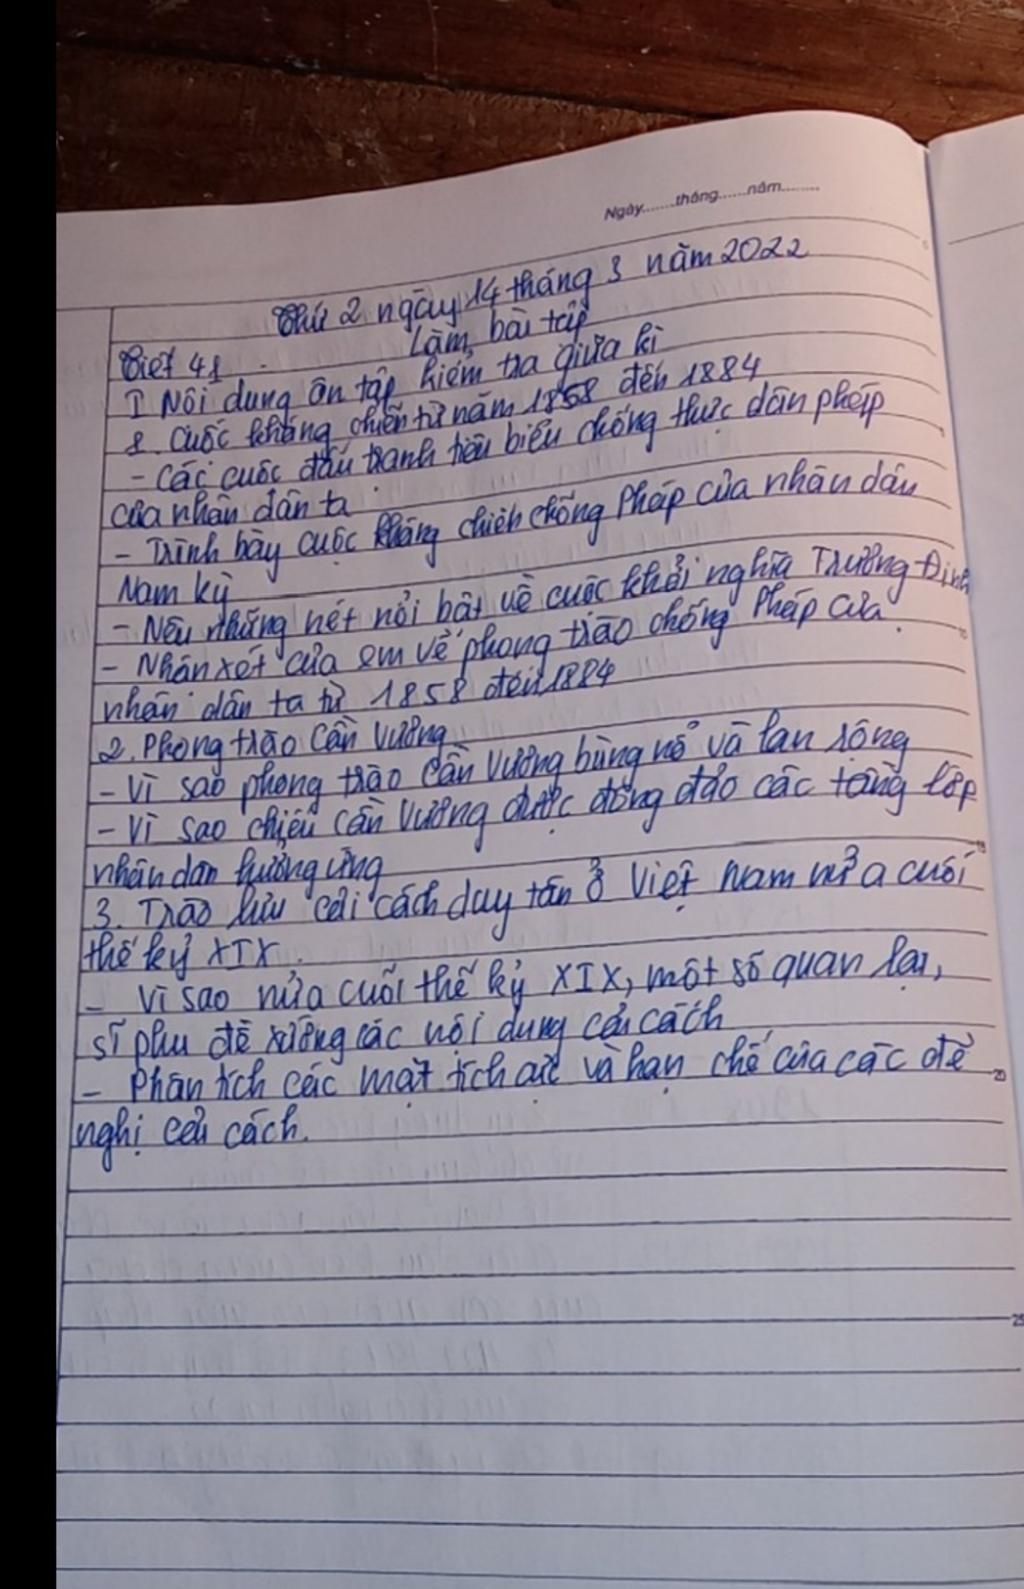 Ngày.......tháng......năm.........
Thứ 2 ngày 14 tháng 3 năm 2022
Làm bài tập
Tiết 41
I Nội dung ôn tập kiểm tra giữa kì
1. Cuộc kháng chiến từ năm 1858 đến 1884
- Các cuộc đấu tranh tiêu biểu chống thực dân pháp
của nhân dân ta
- Trình bày cuộc kháng chiến chống Pháp của nhân dân
Nam kỳ
- Nêu những nét nổi bật về cuộc khởi nghĩa Trương Định
- Nhận xét của em về phong trào chống Pháp của
nhân dân ta từ 1858 đến 1884
2. Phong trào Cần Vương
- Vì sao phong trào Cần Vương bùng nổ và lan rộng
- Vì sao chiếu Cần Vương được đông đảo các tầng lớp
nhân dân hưởng ứng
3. Trào lưu cải cách duy tân ở Việt Nam nửa cuối
thế kỷ XIX.
- Vì sao nửa cuối thế kỷ XIX, một số quan lại,
sĩ phu đề xướng các nội dung cải cách
- Phân tích các mặt tích cực và hạn chế của các đề
nghị cải cách.
10
15
20
25